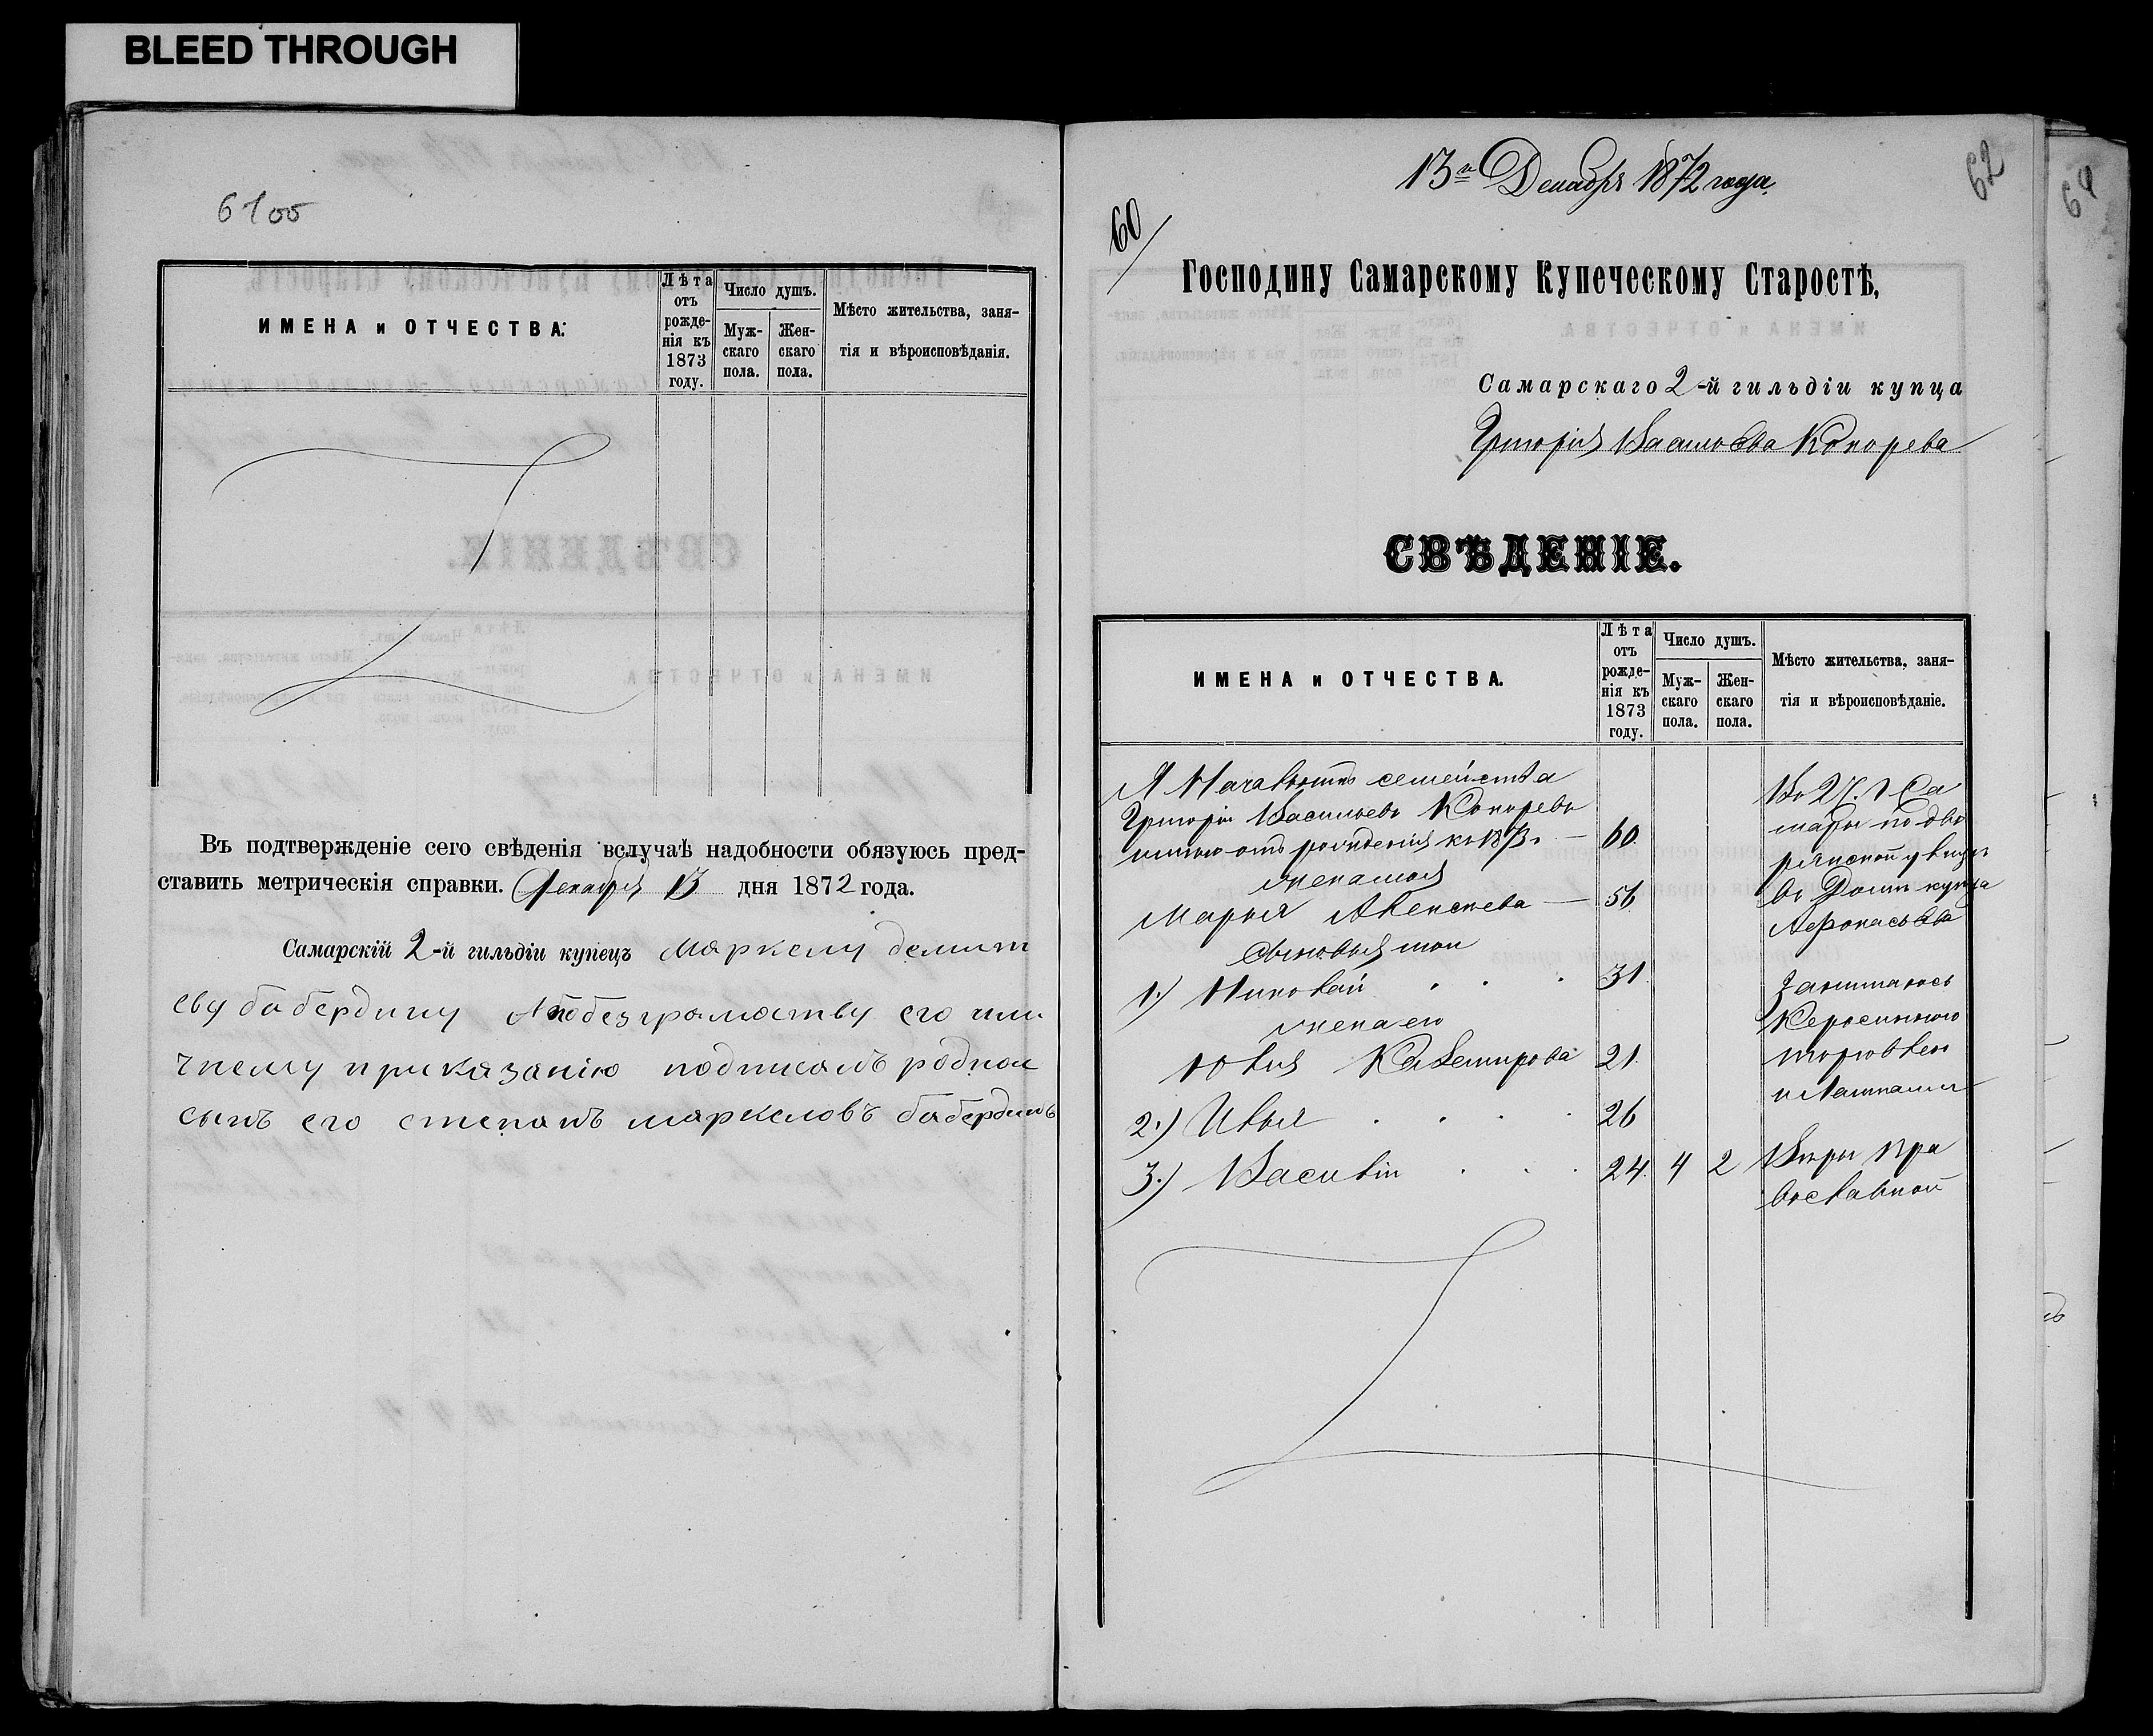 BLEED THROUGH
61об
ИМЕНА и ОТЧЕСТВА.
Лѣта отъ рожденія къ 1873 году.
Число душъ.
Мужскаго пола.
Женскаго пола.
Мѣсто жительства, занятія и вѣроисповѣданія.
Въ подтвержденіе сего свѣденія вслучаѣ надобности обязуюсь пред-
ставить метрическія справки. Декабря 13 дня 1872 года.
Самарскій 2-й гильдіи купецъ Маркелу демит
еву бабердину Апобезграмоству его или
чнему приказанію подписалъ родной
сынъ его степанъ маркеловъ бабердинъ
13го Декабря 1872 года.
62
64
60
Господину Самарскому Купеческому Старостѣ,
Самарскаго 2-й гильдіи купца
Григорія Васильева Кокорева
СВѢДЕНІЕ.
ИМЕНА и ОТЧЕСТВА.
Лѣта отъ рожденія къ 1873 году.
Число душъ.
Мужскаго пола.
Женскаго пола.
Мѣсто жительства, занятія и вѣроисповѣданіе.
Я Начальникъ семейства
Григорій Васильевъ Кокоревъ
отъ рожденія къ 1873 г. — 60.
жена моя
Марья Алексѣева — 56
сыновья мои
1.) Николай . . . 31
жена его
Юлія Казимирова 21.
2.) Илья . . . . 26
3.) Василій . . . 24. 4 2
Во 2 Ч. г. Са
мары по дво
рянской улицѣ
въ Домѣ купца
Афонасьева
Занимаюсь
Керосиновою
торговлею
и Лампами
Вѣры Пра
вославной